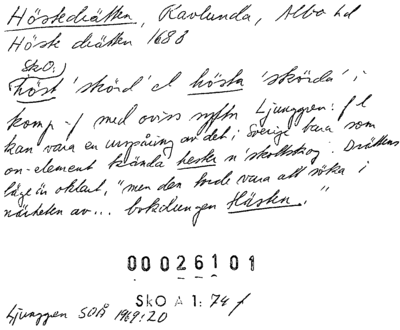 Höstedrätten, Ravlunda, Albo hd
Höste drätten 1688
SkO:
höst 'skörd' el hösta 'skörda' i
komp -f med oviss syftn Ljunggren: f l
kan vara en urspåring av det i Sverige bara som
on-element kända heste n 'skottskog'. Drättens
läge är oklart, "men den torde vara att söka i
närheten av... bokdungen Hästen."
00026101
SkO A 1: 74 f
Ljunggren SOÅ 1969:20